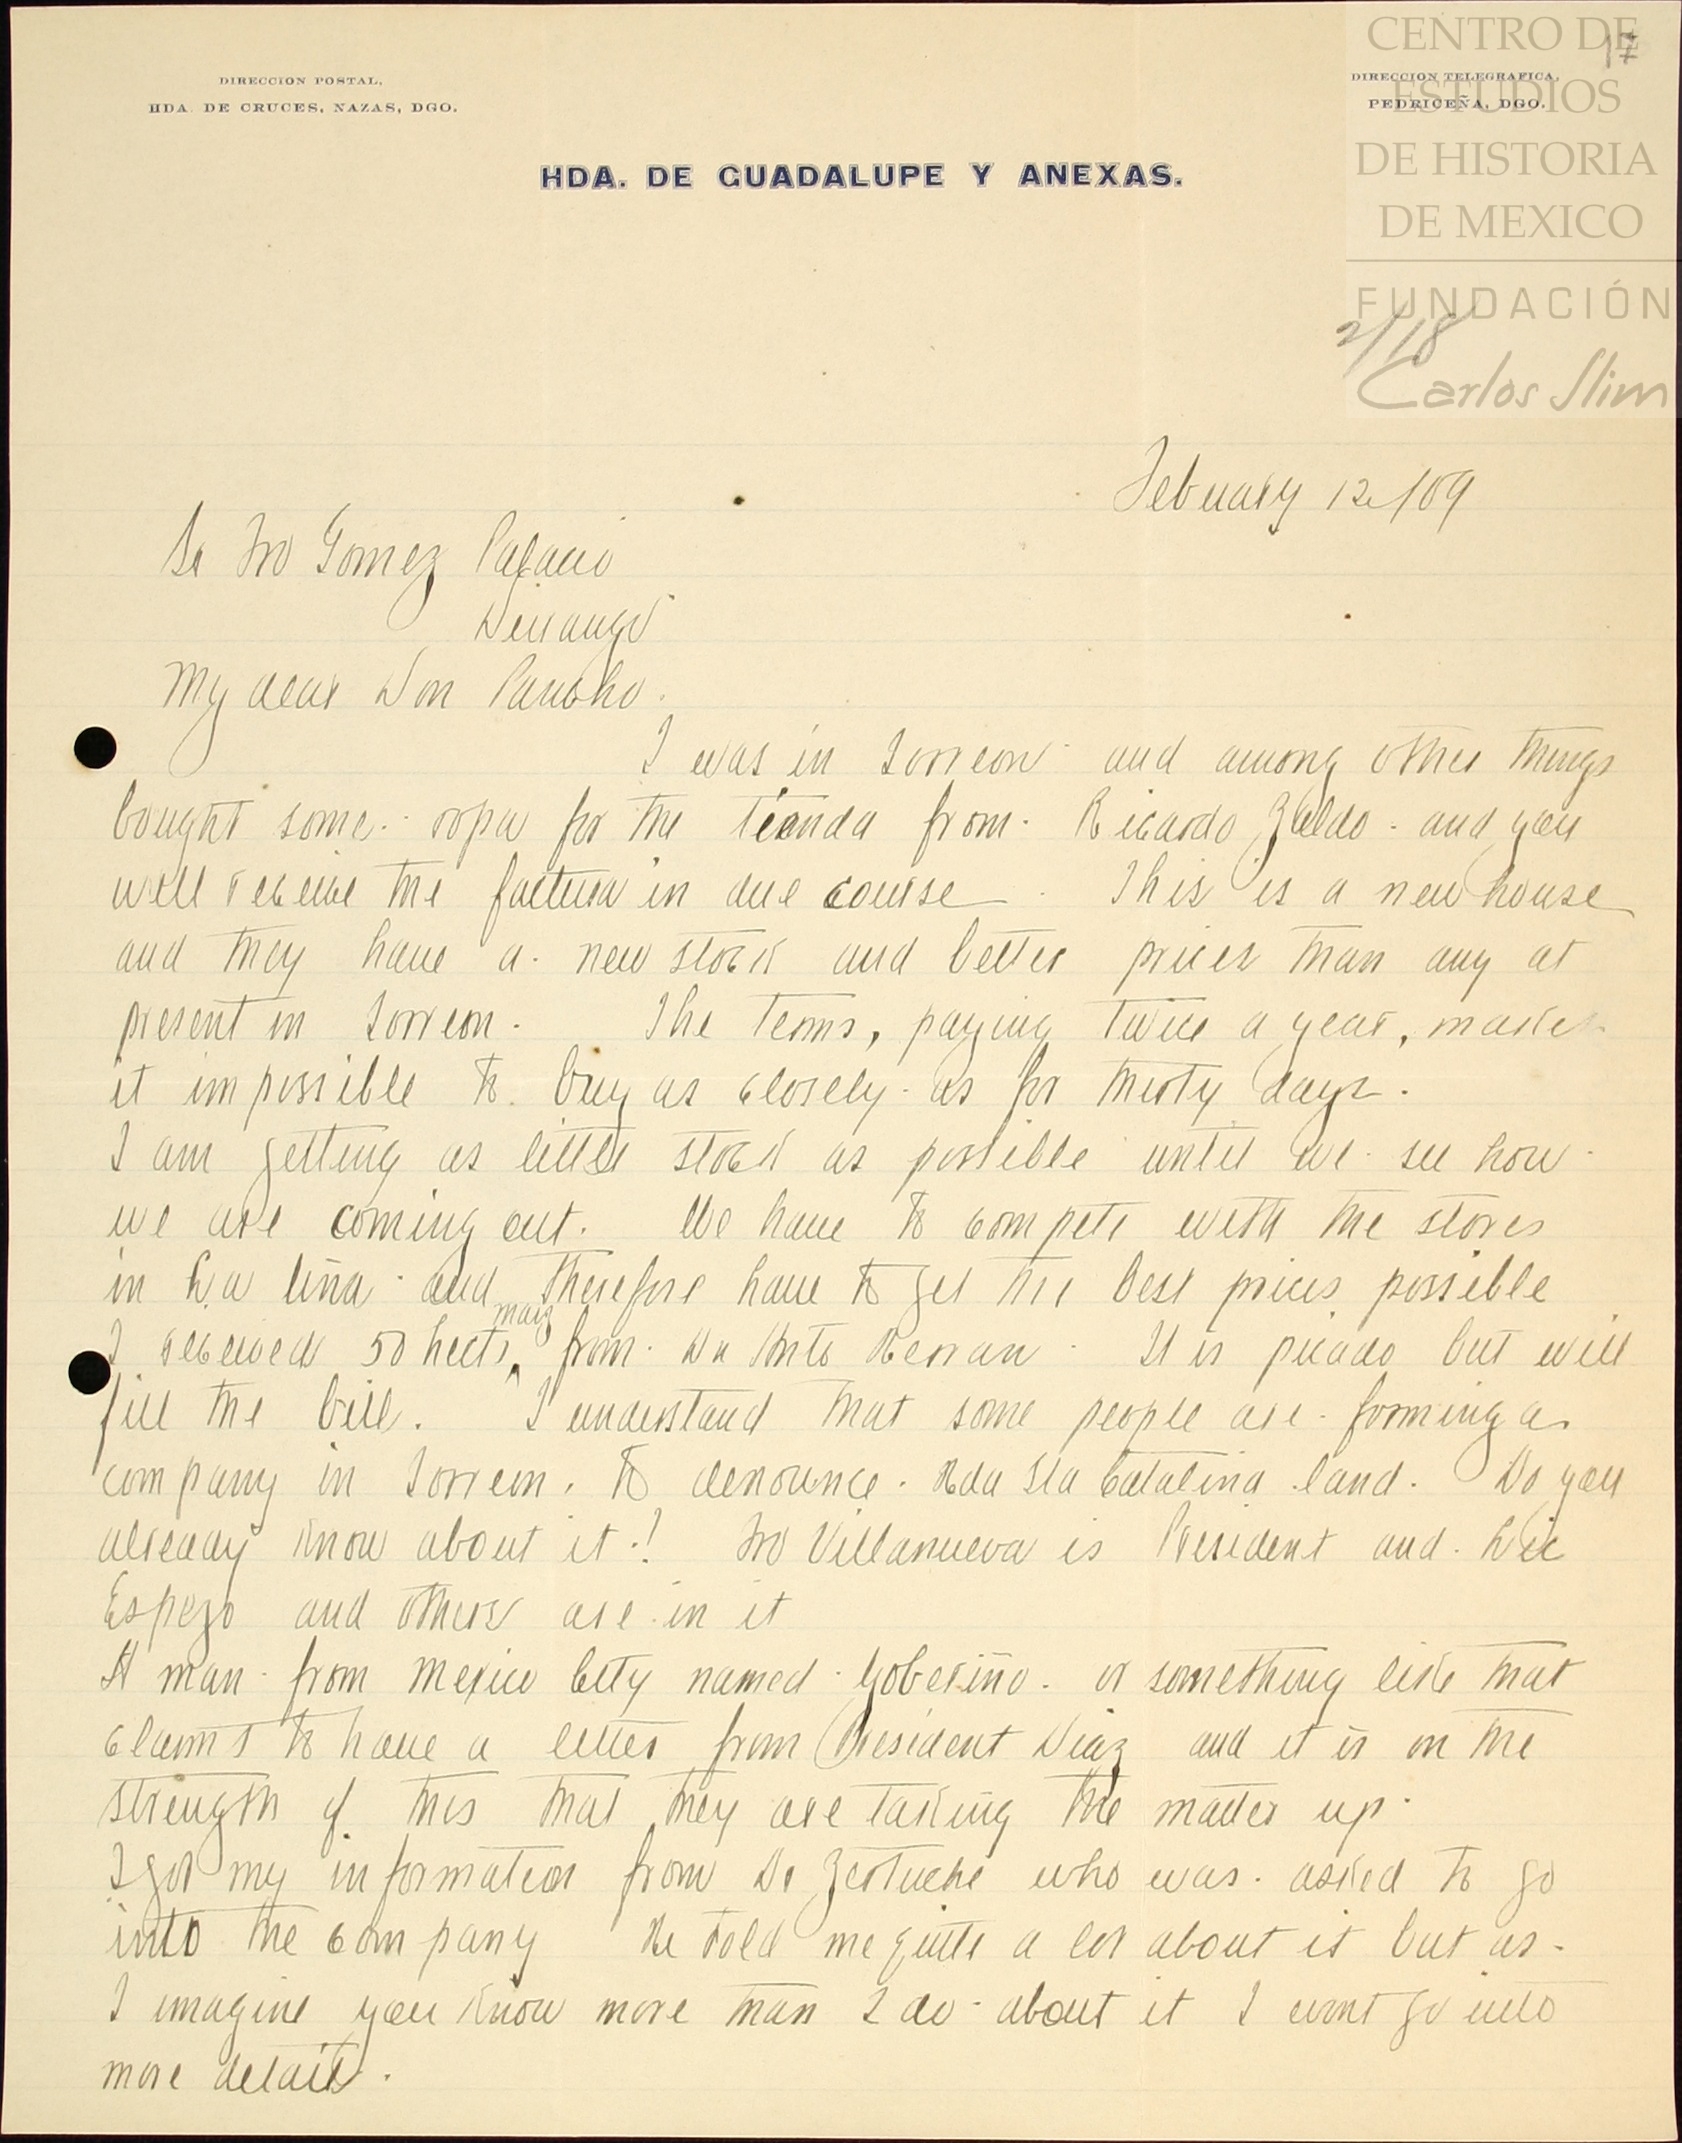 CENTRO DE
ESTUDIOS
DE HISTORIA
DE MEXICO
FUNDACIÓN
Carlos Slim
17
DIRECCION POSTAL,
HDA. DE CRUCES, NAZAS, DGO.
DIRECCION TELEGRAFICA,
PEDRICEÑA, DGO.
HDA. DE GUADALUPE Y ANEXAS.
2/18
Febuary 12/09
Sr Fco Gomez Palacio
Durango
My dear Don Pancho.
I was in Torreon and among other things
bought some ropa for the tienda from Ricardo Zaldo - and you
will receive the factura in due course. This is a new house
and they have a new stock and better prices than any at
present in Torreon. The terms, paying twice a year, makes
it impossible to buy as closely as for thirty days.
I am getting as little stock as possible until we see how
we are coming out. We have to compete with the stores
in La Liña and therefore have to get the best prices possible
I received 50 hects maiz from Dn Anto Herran. It is picado but will
fill the bill. I understand that some people are forming a
company in Torreon. to denounce Hda Sta Catalina land. Do you
already know about it! Fco Villanueva is President and Lic
Espezo and others are in it
A man from Mexico City named Goberiño or something like that
claims to have a letter from President Diaz and it is on the
strength of this that they are taking the matter up.
I got my information from Dr Zertuche who was asked to go
into the company He told me quite a lot about it but as
I imagine you know more than I do about it I wont go into
more details.